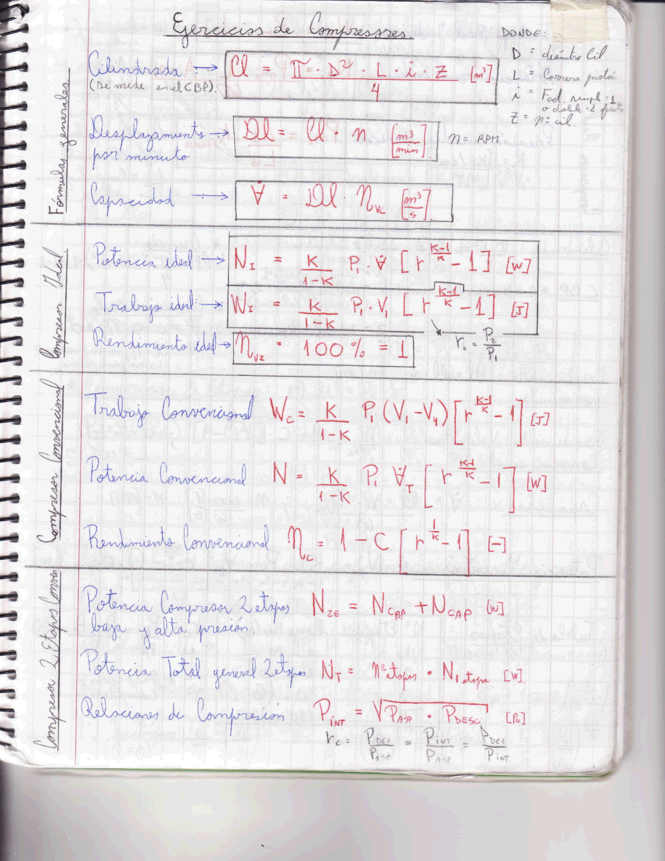 Ejercicios de Compresores.
DONDE:
D = diámtro Cil
L = Carrera pistón
i = Fact. simpl: 1
o doble: 2 efecto
Z = nº cil.
Fórmulas generales
Cilindrada → Cl = π · D² · L · i · Z / 4 [m³]
(Se mide en el CBP).
Desplazamiento por minuto → Dl = Cl · n [m³/min] n = RPM
Capacidad → V̇ = Dl · η_vc [m³/s]
Compresor Ideal
Potencia ideal → N_I = K/(1-K) P₁ · V̇ [r^((K-1)/K) - 1] [W]
Trabajo ideal → W_I = K/(1-K) P₁ · V₁ [r^((K-1)/K) - 1] [J]
r_c = P₂/P₁
Rendimiento ideal → η_vI = 100 % = 1
Compresor Convencional
Trabajo Convencional W_c = K/(1-K) P₁ (V₁ - V₄) [r^((K-1)/K) - 1] [J]
Potencia Convencional N = K/(1-K) P₁ V̇_T [r^((K-1)/K) - 1] [W]
Rendimiento Convencional η_vc = 1 - C [r^(1/K) - 1] [-]
Compresor 2 Etapas
Potencia Compresor 2 etapas N_2E = N_CBP + N_CAP [W]
baja y alta presión.
Potencia Total general 2 etapas N_T = nº etapas · N_1 etapa [W]
Relaciones de Compresión P_INT = √(P_ASP · P_DESC) [Pa]
r_c = P_DES/P_ASP = P_INT/P_ASP = P_DES/P_INT